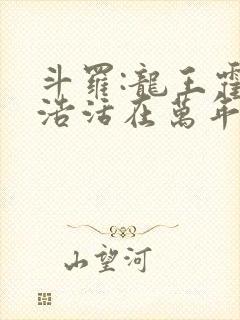 斗羅:龍王霍
浩活在萬年
山望河